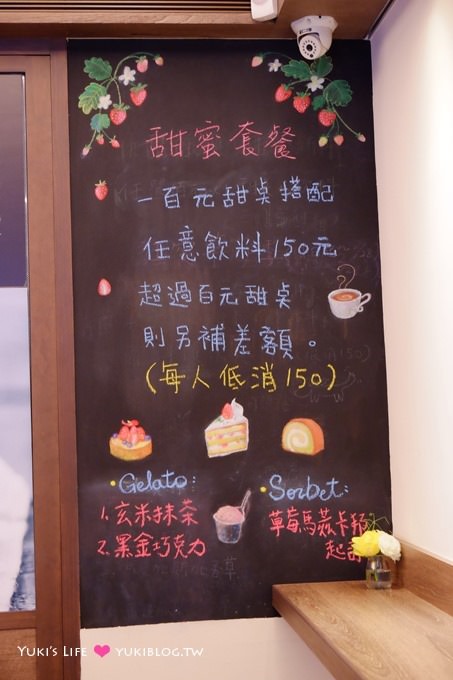 甜蜜套餐
一百元甜桌搭配
任意飲料150元
超過百元甜桌
則另補差額。
(每人低消150)
·Gelato:
1.玄米抹茶
2.黑金巧克力
·Sorbet:
草莓馬茲卡邦
起
YUKI'S LIFE ❤ YUKIBLOG.TW